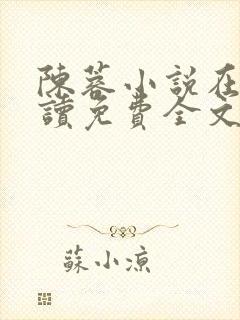 陳蓉小說在
讀免費全文
蘇小涼